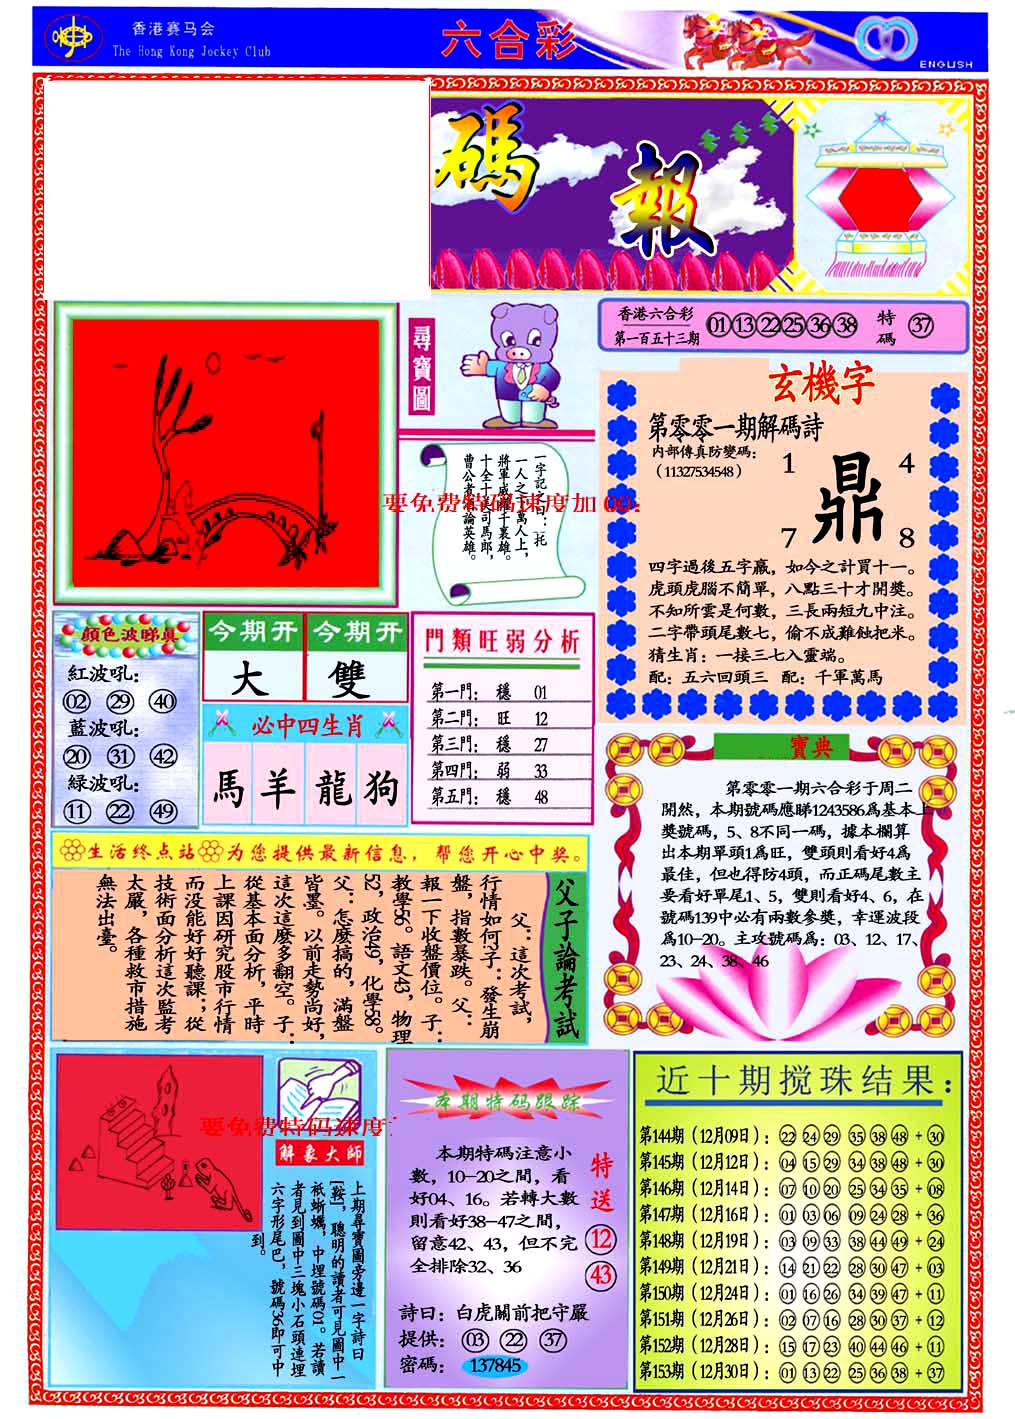 香港赛马会
The Hong Kong Jockey Club
六合彩
ENGLISH
碼報
尋寶圖
香港六合彩
第一百五十三期
01 13 22 25 36 38
特碼
37
一字記之曰：托
一人之下萬人上，
將軍威權千裏雄。
十全十美司馬郎，
曹公煮酒論英雄。
玄機字
第零零一期解碼詩
内部傳真防變碼：
（11327534548）
1 4
鼎
7 8
四字過後五字贏，如今之計買十一。
虎頭虎腦不簡單，八點三十才開獎。
不知所雲是何數，三長兩短九中注。
二字帶頭尾數七，偷不成難蝕把米。
猜生肖：一接三七入靈端。
配：五六回頭三 配：千軍萬馬
顔色波睇真
紅波吼：
02 29 40
藍波吼：
20 31 42
緑波吼：
11 22 49
今期开 今期开
大 雙
必中四生肖
馬羊龍狗
門類旺弱分析
第一門： 穩 01
第二門： 旺 12
第三門： 穩 27
第四門： 弱 33
第五門： 穩 48
寶典
第零零一期六合彩于周二
開然，本期號碼應睇1243586爲基本上
獎號碼，5、8不同一碼，據本欄算
出本期單頭1爲旺，雙頭則看好4爲
最佳，但也得防4頭，而正碼尾數主
要看好單尾1、5，雙則看好4、6，在
號碼139中必有兩數參獎，幸運波段
爲10—20。主攻號碼爲：03、12、17、
23、24、38、46
生活终点站 为您提供最新信息，帮您开心中奖。
父子論考試
父：這次考試，
行情如何？子：發生崩
盤，指數暴跌。父：
報一下收盤價位。子：
教學56。語文43，物理
52，政治49，化學58。
父：怎麽搞的，滿盤
皆墨。以前走勢尚好，
這次這麽多翻空。子：
從基本面分析，平時
上課因研究股市行情
而没能好好聽課；從
技術面分析這次監考
太嚴，各種救市措施
無法出臺。
解象大師
上期尋寶圖旁邊一字詩曰
[鞍]，聰明的讀者可見圖中一
衹蜥蠣，中埋號碼01。若讀
者見到圖中三塊小石頭連埋
六字形尾巴，號碼36即可中
到。
本期特码跟踪
本期特码注意小
數，10—20之間，看
好04、16。若轉大數
則看好38—47之間，
留意42、43，但不完
全排除32、36
特送
12
43
詩曰：白虎關前把守嚴
提供： 03 22 37
密碼： 137845
近十期搅珠结果：
第144期（12月09日）：22 24 29 35 38 48 + 30
第145期（12月12日）：04 15 29 34 38 48 + 30
第146期（12月14日）：07 10 20 25 34 35 + 08
第147期（12月16日）：01 03 06 09 24 28 + 36
第148期（12月19日）：03 09 33 38 44 49 + 24
第149期（12月21日）：14 21 22 28 30 47 + 03
第150期（12月24日）：01 16 26 34 39 47 + 11
第151期（12月26日）：02 07 16 28 30 37 + 12
第152期（12月28日）：15 17 23 40 44 46 + 11
第153期（12月30日）：01 13 22 25 36 38 + 37
要免费特码速度加 QQ:
要免费特码速度